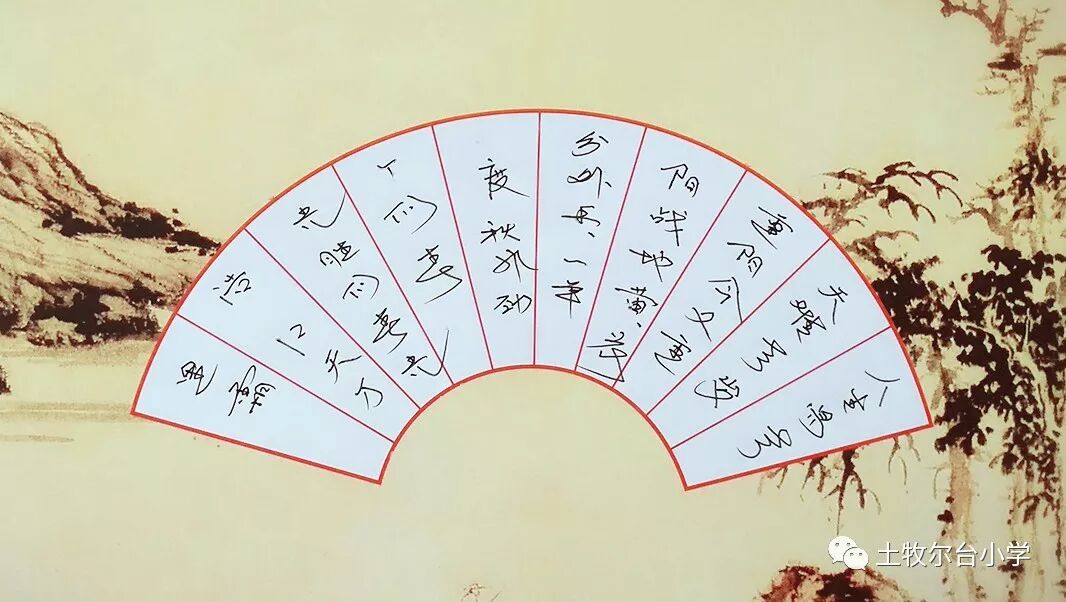 人生易老
天难老岁
重阳今又重
阳战地黄花
分外香、一年
度秋风劲
不似春
光胜似春光
江天万
里霜
土牧尔台小学